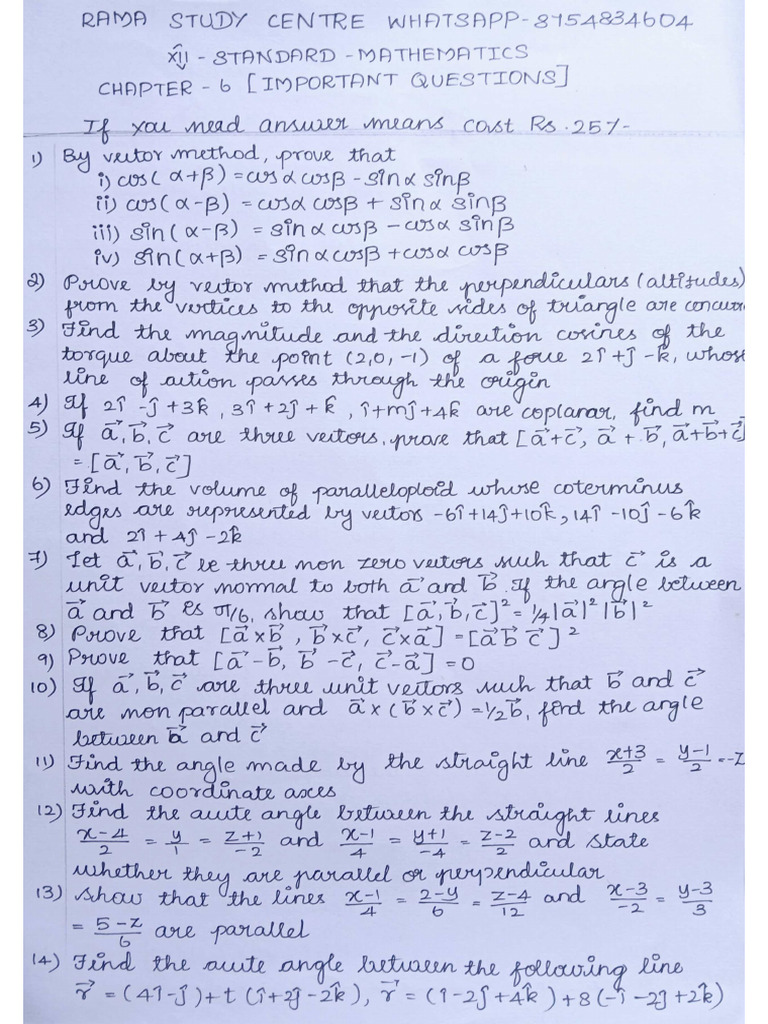 RAMA STUDY CENTRE WHATSAPP-8754834604
XII - STANDARD - MATHEMATICS
CHAPTER - 6 [IMPORTANT QUESTIONS]
If you need answer means cost Rs.25/-
1) By vector method, prove that
i) cos(α+β) = cosα cosβ - sinα sinβ
ii) cos(α-β) = cosα cosβ + sinα sinβ
iii) sin(α-β) = sinα cosβ - cosα sinβ
iv) sin(α+β) = sinα cosβ + cosα cosβ
2) Prove by vector method that the perpendiculars (altitudes)
from the vertices to the opposite sides of triangle are concurr
3) Find the magnitude and the direction cosines of the
torque about the point (2,0,-1) of a force 2î+ĵ-k̂, whose
line of action passes through the origin
4) If 2î-ĵ+3k̂, 3î+2ĵ+k̂, î+mĵ+4k̂ are coplanar, find m
5) If a⃗, b⃗, c⃗ are three vectors, prove that [a⃗+c⃗, a⃗+b⃗, a⃗+b⃗+c⃗]
= [a⃗, b⃗, c⃗]
6) Find the volume of paralleloploid whose coterminus
edges are represented by vectors -6î+14ĵ+10k̂, 14î-10ĵ-6k̂
and 2î+4ĵ-2k̂
7) Let a⃗, b⃗, c⃗ be three non zero vectors such that c⃗ is a
unit vector normal to both a⃗ and b⃗. If the angle between
a⃗ and b⃗ is π/6, show that [a⃗, b⃗, c⃗]² = 1/4|a⃗|²|b⃗|²
8) Prove that [a⃗×b⃗, b⃗×c⃗, c⃗×a⃗] = [a⃗ b⃗ c⃗]²
9) Prove that [a⃗-b⃗, b⃗-c⃗, c⃗-a⃗] = 0
10) If a⃗, b⃗, c⃗ are three unit vectors such that b⃗ and c⃗
are non parallel and a⃗×(b⃗×c⃗) = 1/2 b⃗, find the angle
between a⃗ and c⃗
11) Find the angle made by the straight line x+3/2 = y-1/2 = -z
with coordinate axes
12) Find the acute angle between the straight lines
x-4/2 = y/1 = z+1/-2 and x-1/4 = y+1/-4 = z-2/2 and state
whether they are parallel or perpendicular
13) Show that the lines x-1/4 = 2-y/6 = z-4/12 and x-3/-2 = y-3/3
= 5-z/6 are parallel
14) Find the acute angle between the following line
r⃗ = (4î-ĵ)+t(î+2ĵ-2k̂), r⃗ = (î-2ĵ+4k̂)+s(-î-2ĵ+2k̂)